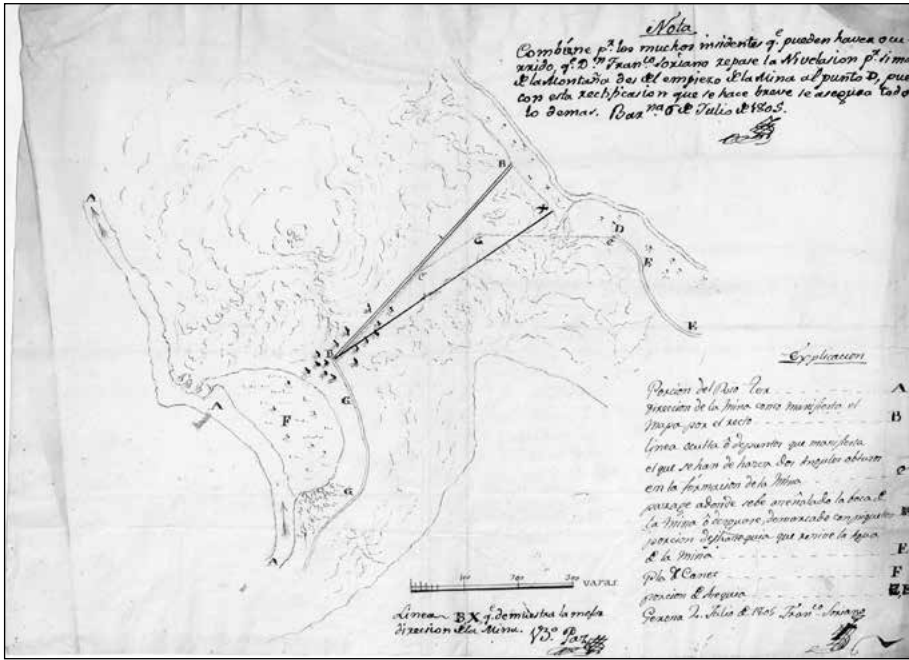 Nota
Combiene pr. los muchos insidentes qe. pueden haver ocu-
rrido, qe. Dn. Franco. Soriano repase la Nivelasion pr. sima
de la Montaña des del empiezo de la Mina al punto D, pues
con esta rectificasion que se hace breve se asegura todo
lo demas. Barna. 6 de Julio de 1805.
A
B
X
D
C
G
E
C
E
B
A
G
F
G
A
Explicacion
Porcion del Rio Ter A
Direcion de la Mina como manifiesta el
Mapa por el recto B
linea oculta ó de puntos que manifiesta
el que se han de hazer dos Angulos obtusos
en la formacion de la Mina C
parage adonde sebe la boca de
la Mina ó demarcado con piquetes D
porcion de que recive la Agua
de la Mina E
Pla de Canet F
porcion de Asequia
Gerona 2 Julio de 1805 Franco. Soriano
100 200 300 varas
Linea BX qe. demuestra la mesma
direcion de la Mina. Vo. Bo. Paz